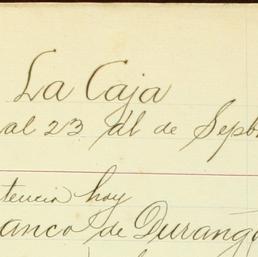 La Caja
al 23 al de Sepb
tencia hoy
anco de Durango